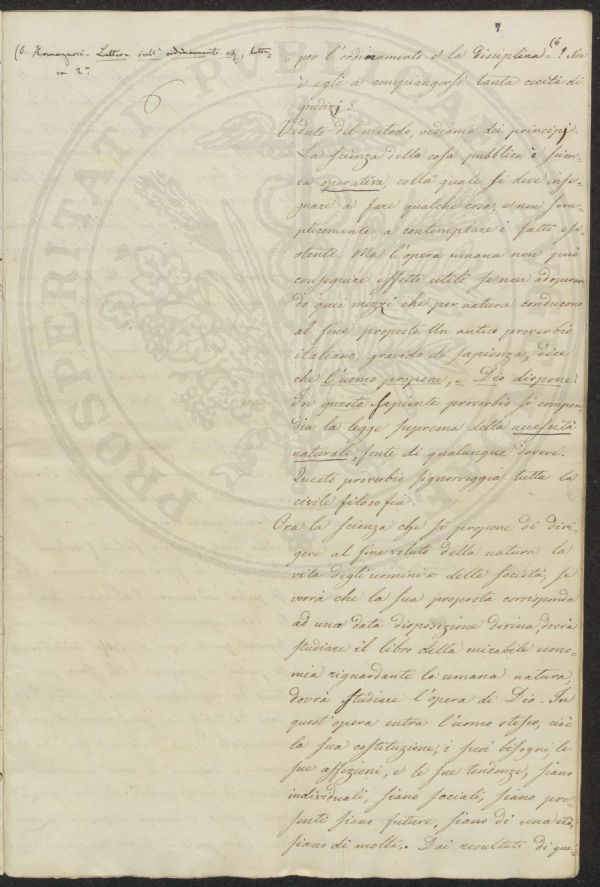 7
(6. Romagnosi. Lettere sull' ordinamento &, lette-
ra 2.a
6
per l'ordinamento e la disciplina = (6 ? Non
è egli a compiangersi tanta cecità di
giudizj?
Veduto del metodo, vediamo dei principj.
La scienza della cosa pubblica è scien-
za operativa, colla quale si deve inse-
gnare a fare qualche cosa, e non sem-
plicemente a contemplare i fatti esi-
stenti. Ma l'opera umana non può
conseguire effetti utili se non adoperan-
do quei mezzi che per natura conducono
al fine proposto. Un antico proverbio
italiano, gravido di sapienza, dice
che l'uomo propone, e Dio dispone.
In questo sapiente proverbio si compen-
dia la legge suprema della necessità
naturale, fonte di qualunque dovere.
Questo proverbio signoreggia tutta la
civile filosofia.
Ora la scienza che si propone di diri-
gere al fine voluto della natura la
vita degli uomini e delle società, se
vorrà che la sua proposta corrisponda
ad una data disposizione divina, dovrà
studiare il libro della mirabile econo-
mia riguardante la umana natura,
dovrà studiare l'opera di Dio. In
quest'opera entra l'uomo stesso, cioè
la sua costituzione, i suoi bisogni, le
sue affezioni, e le sue tendenze, siano
individuali, siano sociali, siano pre-
senti siano future, siano di una età,
siano di molte. Dai resultati di que-
PROSPERITATI PUBLICAE